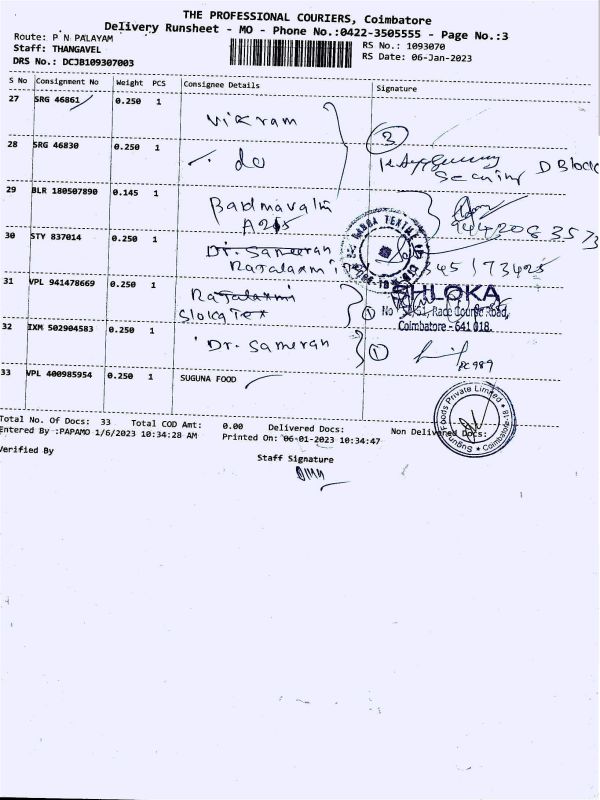 THE PROFESSIONAL COURIERS, Coimbatore
Delivery Runsheet - MO - Phone No.:0422-3505555 - Page No.:3
Route: P N PALAYAM
Staff: THANGAVEL
DRS No.: DCJB109307003
RS No.: 1093070
RS Date: 06-Jan-2023
S No Consignment No Weight PCS Consignee Details Signature
27 SRG 46861 0.250 1 Vikram
28 SRG 46830 0.250 1 do
Security D Block
29 BLR 180507890 0.145 1 Badmavathi
A205
30 STY 837014 0.250 1 Dr. Sameeran
Rajalaxmi
31 VPL 941478669 0.250 1 Rajalaxmi
Sloka Tex
SHLOKA
Race Course Road,
Coimbatore - 641 018.
32 IXM 502904583 0.250 1 Dr. Sameran 1
33 VPL 400985954 0.250 1 SUGUNA FOOD
Suguna Foods Private Limited
Coimbatore-18
Total No. Of Docs: 33 Total COD Amt: 0.00 Delivered Docs: Non Delivered Docs:
Entered By :PAPAMO 1/6/2023 10:34:28 AM Printed On: 06-01-2023 10:34:47
Verified By
Staff Signature